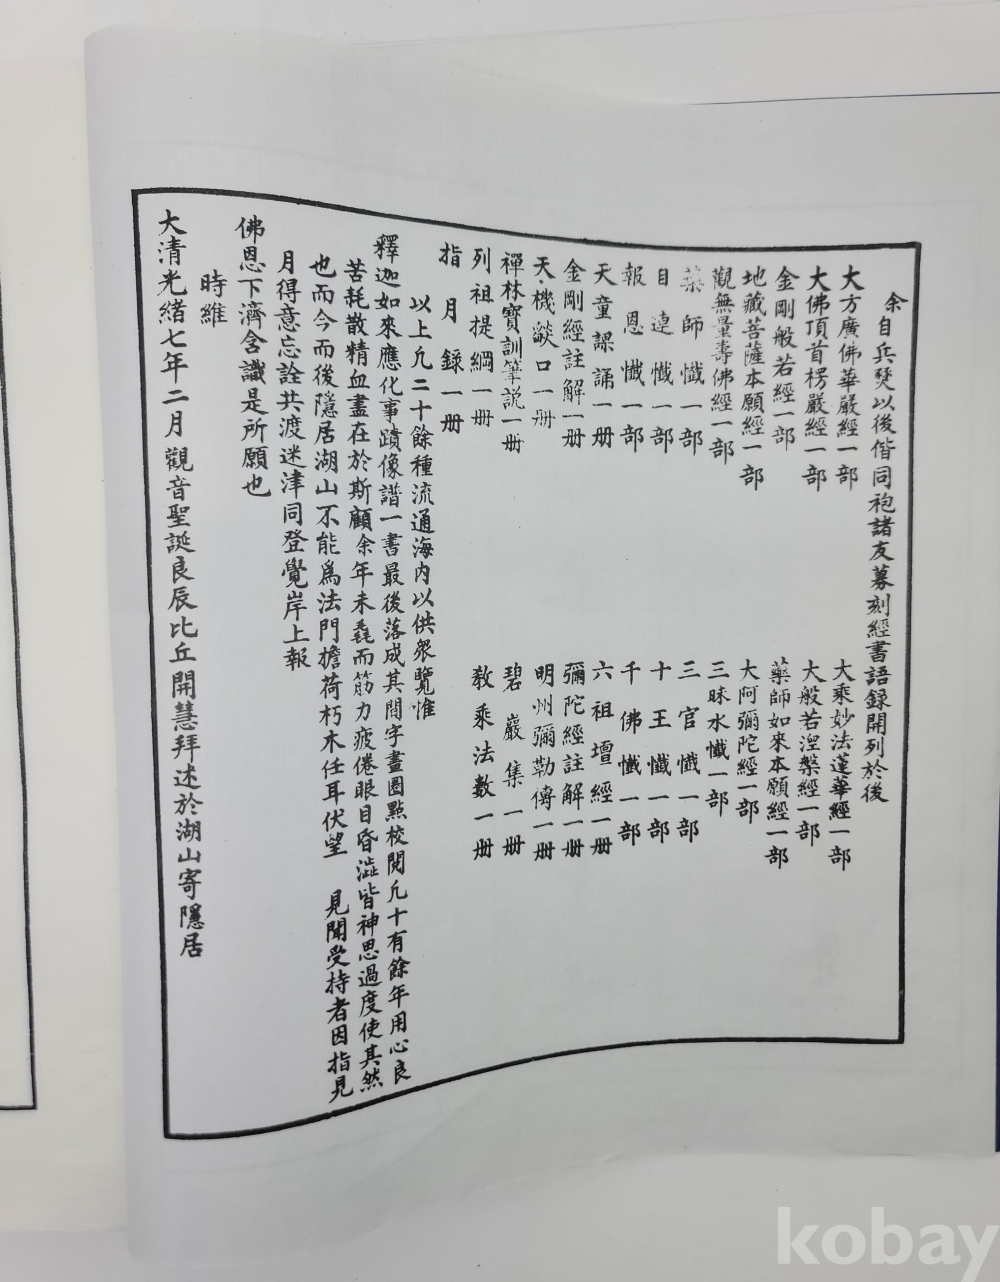 余自兵燹以後偕同袍諸友募刻經書語録開列於後
大方廣佛華嚴經一部　大乘妙法蓮華經一部
大佛頂首楞嚴經一部　大般若涅槃經一部
金剛般若經一部　藥師如來本願經一部
地藏菩薩本願經一部　大阿彌陀經一部
觀無量壽佛經一部　三昧水懺一部
藥師懺一部　三官懺一部
目連懺一部　十王懺一部
報恩懺一部　千佛懺一部
天童課誦一册　六祖壇經一册
金剛經註解一册　彌陀經註解一册
天機燄口一册　明州彌勒傳一册
禪林寳訓筆説一册　碧巖集一册
列祖提綱一册　教乘法數一册
指月録一册
以上凢二十餘種流通海内以供衆覽惟
釋迦如來應化事蹟像譜一書最後落成其間字畫圈點校閲凢十有餘年用心良
苦耗散精血盡在於斯顧余年未耄而筋力疲倦眼目昏澁皆神思過度使其然
也而今而後隱居湖山不能爲法門擔荷朽木任耳伏望　見聞受持者因指見
月得意忘詮共渡迷津同登覺岸上報
佛恩下濟含識是所願也
時維
大清光緒七年二月觀音聖誕良辰比丘開慧拜述於湖山寄隱居
kobay